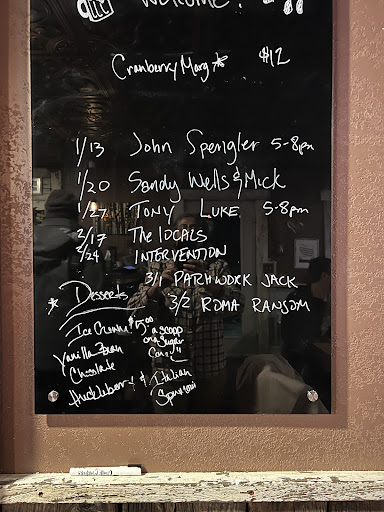 WELCOME!
Cranberry Marg* $12
1/13 John Spengler 5-8pm
1/20 Sandy Wells & Mick
1/27 TONY LUKE 5-8pm
2/17 The LOCALS
2/24 INTERVENTION
3/1 PATCHWORK JACK
3/2 ROMA RANSOM
* Desserts
Ice Cream $5.00 a scoop
on a sugar
cone!!
Vanilla Bean
Chocolate
Huckleberry & Italian